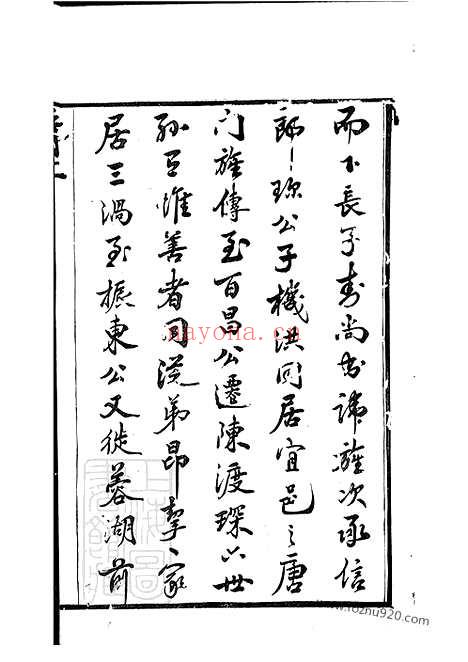 而下長子書尚書諱灌次承信
郎諱琛公子機洪同居宜邑之唐
门族傳至百昌公遷陳渡琛六世
孫三惟善者同従弟昂挈家
居三渦至振東公又徙蓉湖前
nayona.cn
www.fozhu920.com